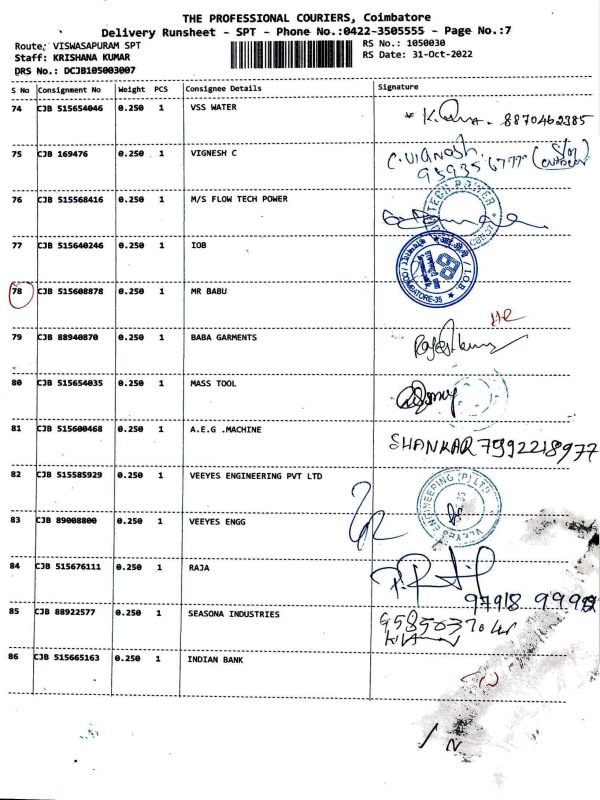 THE PROFESSIONAL COURIERS, Coimbatore
Delivery Runsheet - SPT - Phone No.:0422-3505555 - Page No.:7
Route: VISWASAPURAM SPT
RS No.: 1050030
Staff: KRISHANA KUMAR
RS Date: 31-Oct-2022
DRS No.: DCJB105003007
S No Consignment No Weight PCS Consignee Details Signature
74 CJB 515654046 0.250 1 VSS WATER 8870462385
75 CJB 169476 0.250 1 VIGNESH C C. VIGNESH.
76 CJB 515568416 0.250 1 M/S FLOW TECH POWER TECH POWER
77 CJB 515640246 0.250 1 IOB
I.O.B COIMBATORE-35
78 CJB 515608878 0.250 1 MR BABU
79 CJB 88940870 0.250 1 BABA GARMENTS
80 CJB 515654035 0.250 1 MASS TOOL
81 CJB 515600468 0.250 1 A.E.G .MACHINE SHANKAR 7992218977
82 CJB 515585929 0.250 1 VEEYES ENGINEERING PVT LTD
VEEYES ENGINEERING (P) LTD
83 CJB 89008800 0.250 1 VEEYES ENGG
84 CJB 515676111 0.250 1 RAJA
85 CJB 88922577 0.250 1 SEASONA INDUSTRIES
86 CJB 515665163 0.250 1 INDIAN BANK